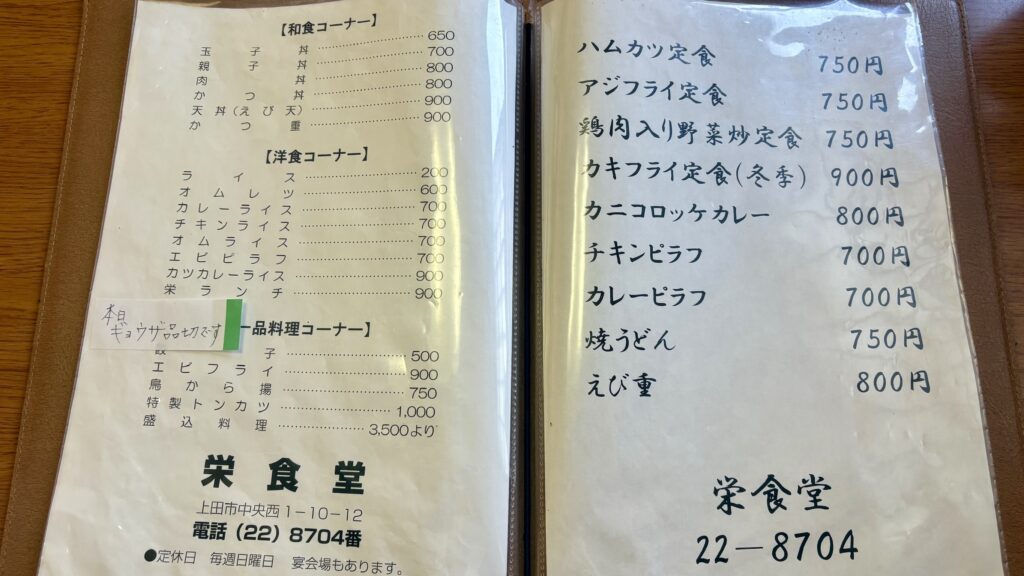 【和食コーナー】
玉子丼 650
親子丼 700
肉丼 800
かつ丼 800
天丼(えび天) 900
かつ重 900
【洋食コーナー】
ライス 200
オムレツ 600
カレーライス 700
チキンライス 700
オムライス 700
エビピラフ 700
カツカレーライス 900
栄ランチ 900
本日
ギョウザ品切です
一品料理コーナー】
餃子 500
エビフライ 900
鳥から揚 750
特製トンカツ 1,000
盛込料理 3,500より
栄食堂
上田市中央西1-10-12
電話(22)8704番
●定休日 毎週日曜日 宴会場もあります。
ハムカツ定食 750円
アジフライ定食 750円
鶏肉入り野菜炒定食 750円
カキフライ定食(冬季) 900円
カニコロッケカレー 800円
チキンピラフ 700円
カレーピラフ 700円
焼うどん 750円
えび重 800円
栄食堂
22-8704